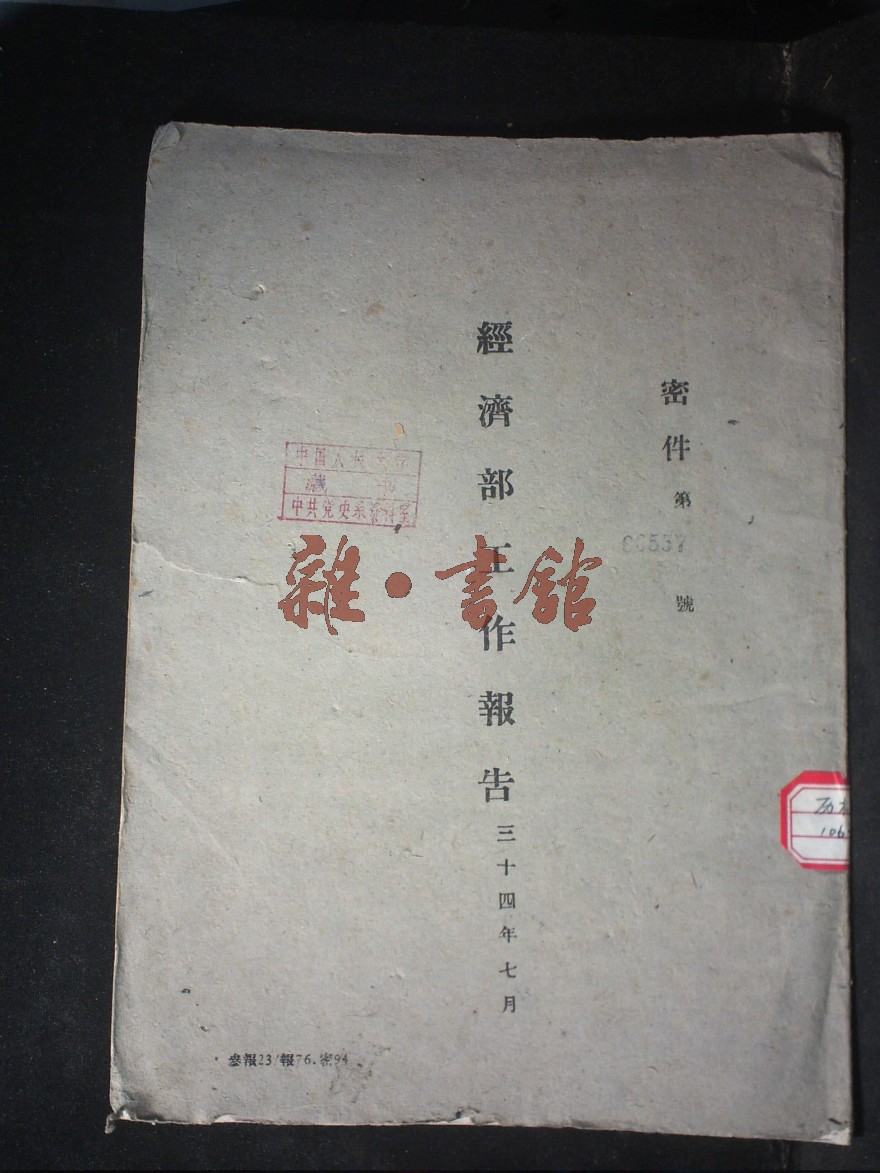 密件第00537號
經濟部工作報告 三十四年七月
中国人民大学
藏书
中共党史系资料室
雜·書館
106
參報23/報76.密94